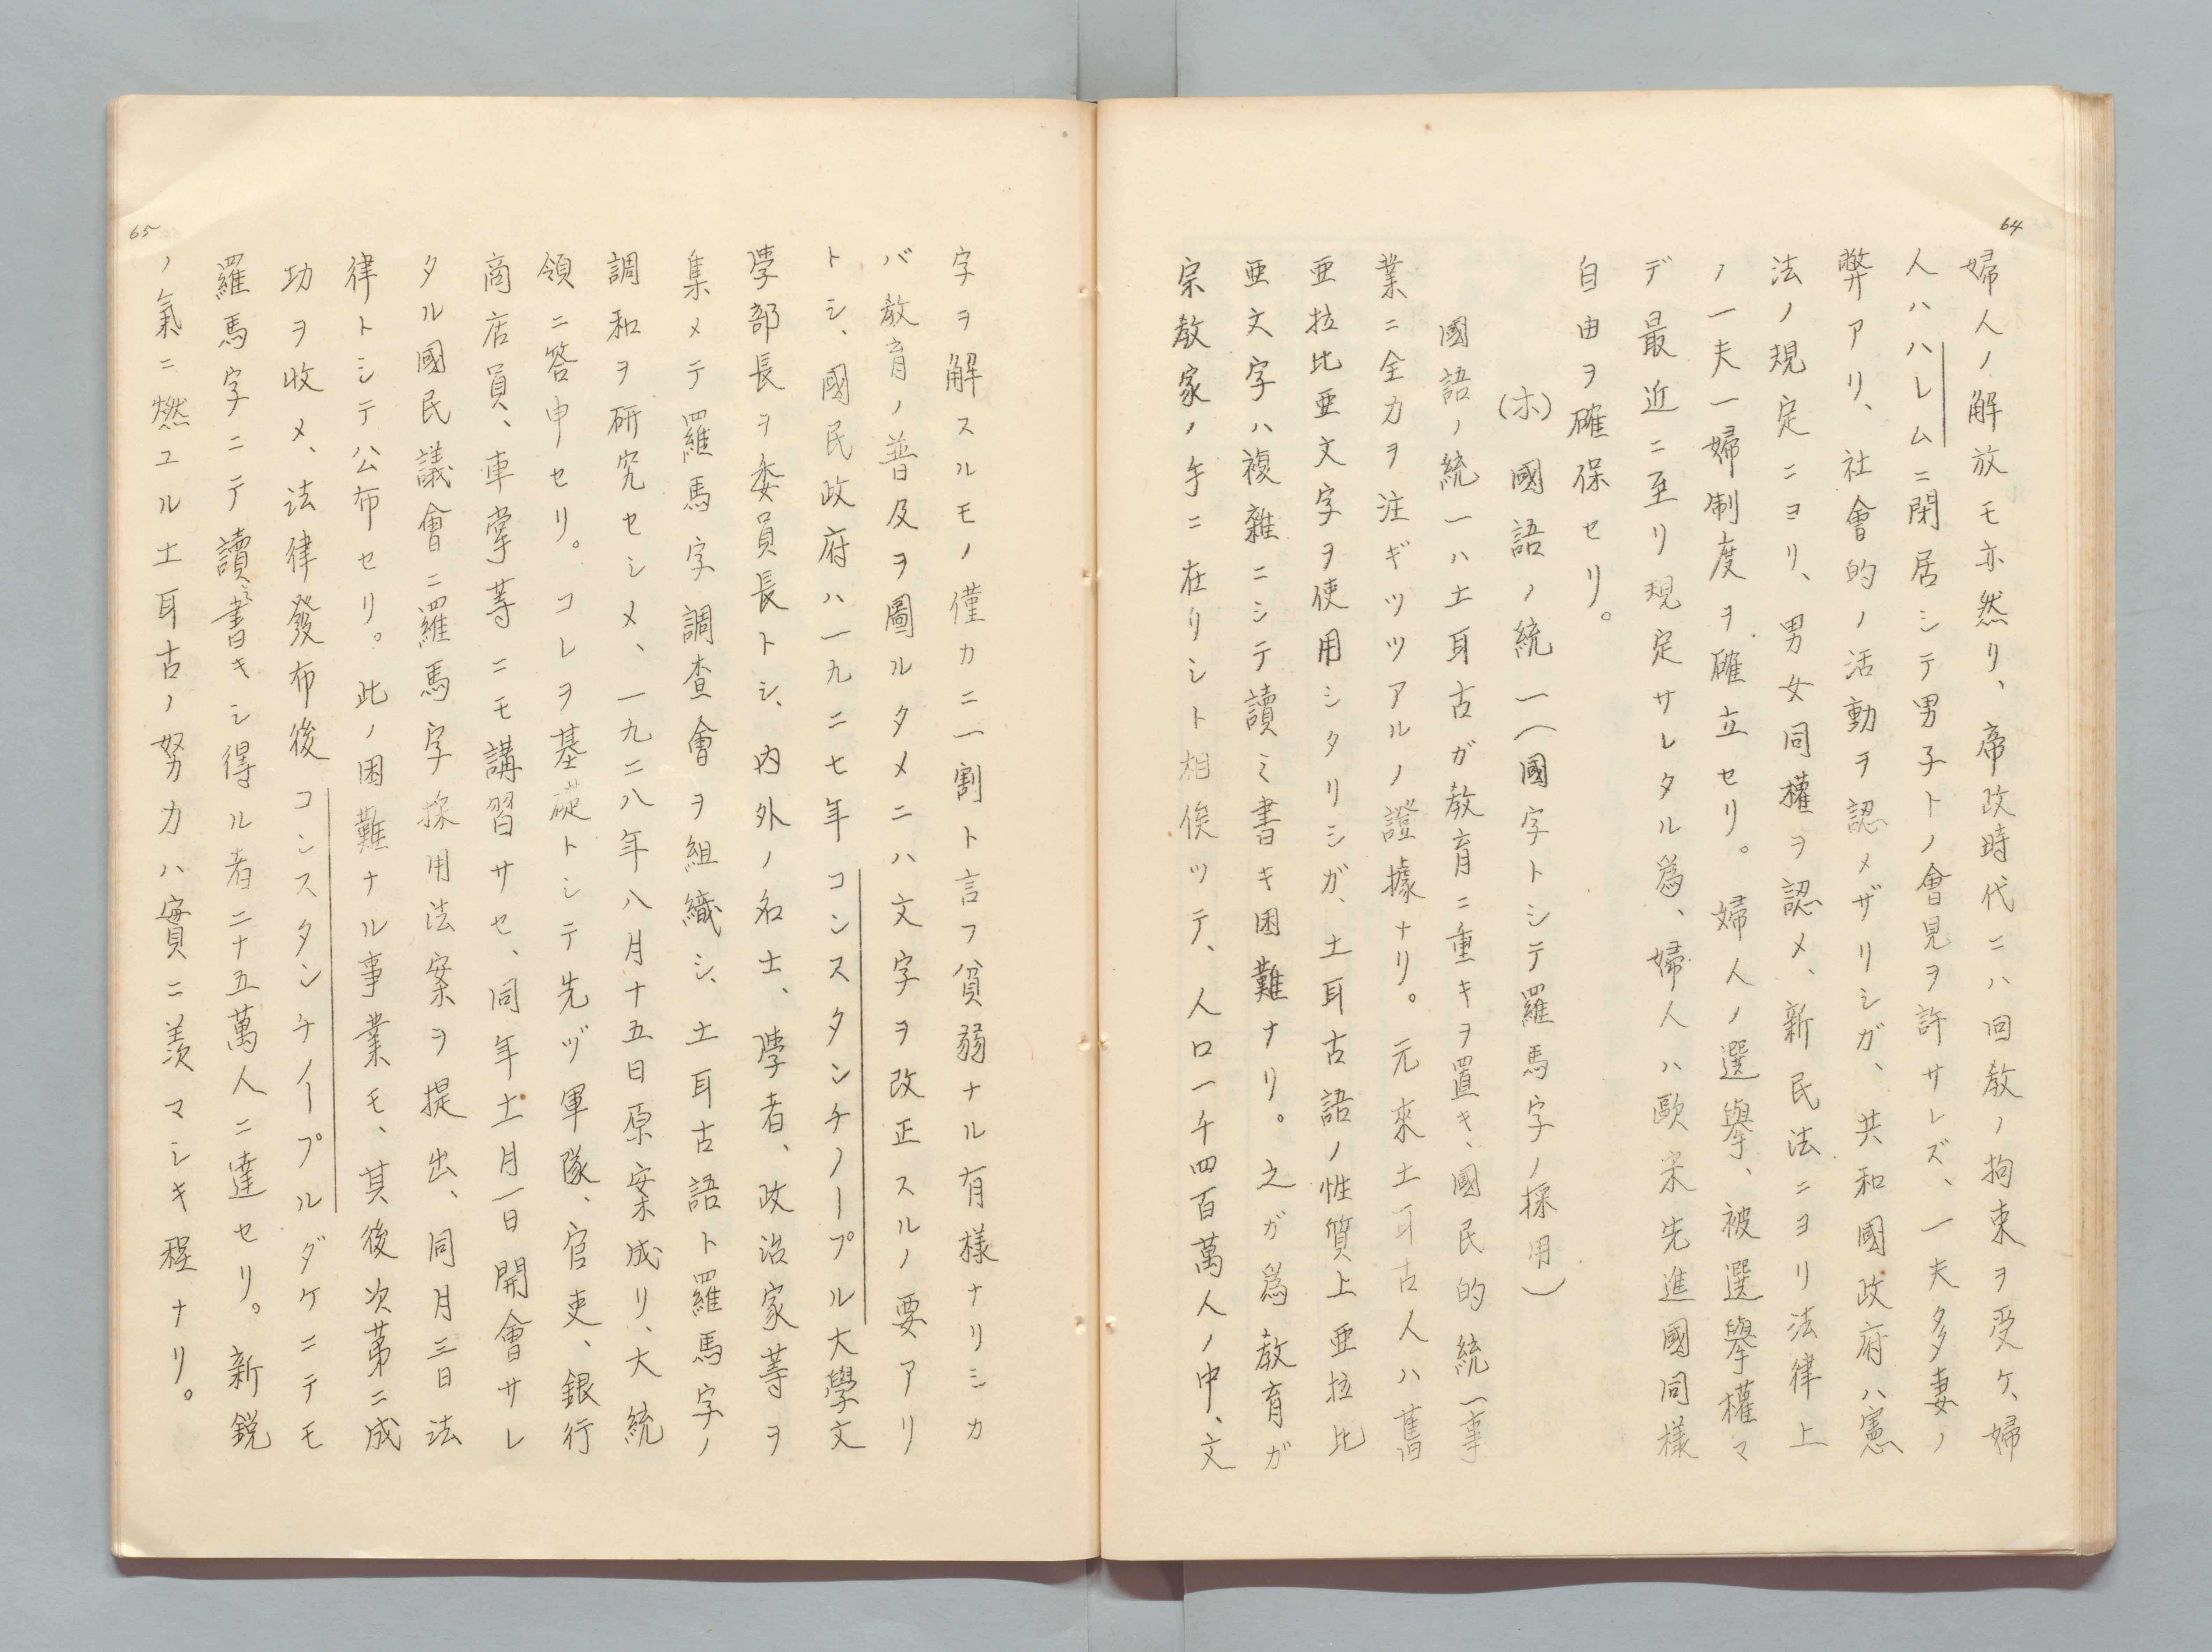 64
婦人ノ解放モ亦然リ、帝政時代ニハ回教ノ拘束ヲ受ケ、婦
人ハハレムニ閉居シテ男子トノ會見ヲ許サレズ、一夫多妻ノ
弊アリ、社會的ノ活動ヲ認メザリシガ、共和國政府ハ憲
法ノ規定ニヨリ、男女同權ヲ認メ、新民法ニヨリ法律上
ノ一夫一婦制度ヲ確立セリ。婦人ノ選擧、被選擧權マ
デ最近ニ至リ規定サレタル爲、婦人ハ歐米先進國同樣
自由ヲ確保セリ。
(ホ)國語ノ統一(國字トシテ羅馬字ノ採用)
國語ノ統一ハ土耳古ガ敎育ニ重キヲ置キ、國民的統一事
業ニ全力ヲ注ギツツアルノ證據ナリ。元來土耳古人ハ舊
亜拉比亜文字ヲ使用シタリシガ、土耳古語ノ性質上亜拉比
亜文字ハ複雜ニシテ讀ミ書キ困難ナリ。之ガ爲敎育ガ
宗敎家ノ手ニ在リシト相俟ッテ、人口一千四百萬人ノ中、文
字ヲ解スルモノ僅カニ一割ト言フ貧弱ナル有樣ナリシカ
バ敎育ノ普及ヲ圖ルタメニハ文字ヲ改正スルノ要アリ
トシ、國民政府ハ一九二七年コンスタンチノープル大學文
學部長ヲ委員長トシ、内外ノ名士、學者、政治家等ヲ
集メテ羅馬字調査會ヲ組織シ、土耳古語ト羅馬字ノ
調和ヲ研究セシメ、一九二八年八月十五日原案成リ、大統
領ニ答申セリ。コレヲ基礎トシテ先ヅ軍隊、官吏、銀行
商店員、車掌等ニモ講習サセ、同年十一月一日開會サレ
タル國民議會ニ羅馬字採用法案ヲ提出、同月三日法
律トシテ公布セリ。此ノ困難ナル事業モ、其後次第ニ成
功ヲ收メ、法律發布後コンスタンチノープルダケニテモ
羅馬字ニテ讀ミ書キシ得ル者二十五萬人ニ達セリ。新鋭
ノ氣ニ燃ユル土耳古ノ努力ハ實ニ羨マシキ程ナリ。
65